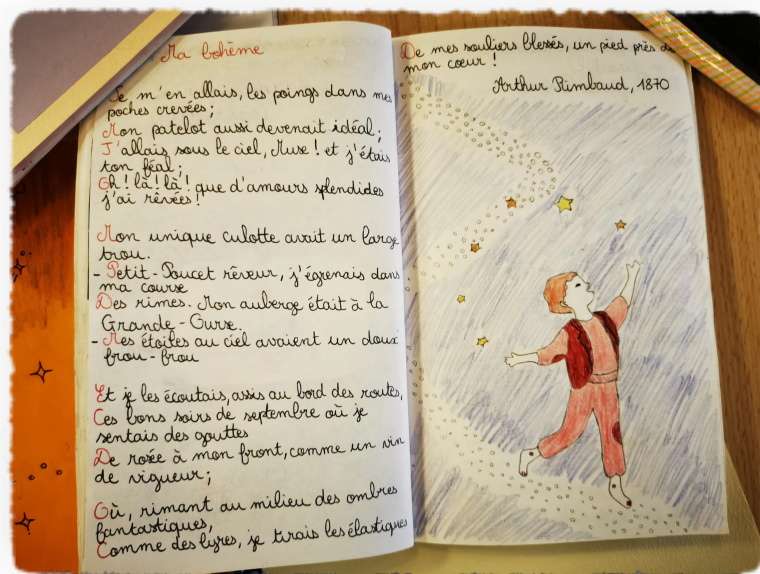 Ma bohème
Je m'en allais, les poings dans mes
poches crevées ;
Mon patelot aussi devenait idéal ;
J'allais sous le ciel, Muse ! et j'étais
ton féal ;
Oh ! là ! là ! que d'amours splendides
j'ai rêvées !
Mon unique culotte avait un large
trou.
- Petit-Poucet rêveur, j'égrenais dans
ma course
Des rimes. Mon auberge était à la
Grande-Ourse.
- Mes étoiles au ciel avaient un doux
frou-frou
Et je les écoutais, assis au bord des routes,
Ces bons soirs de septembre où je
sentais des gouttes
De rosée à mon front, comme un vin
de vigueur ;
Où, rimant au milieu des ombres
fantastiques,
Comme des lyres, je tirais les élastiques
De mes souliers blessés, un pied près de
mon cœur !
Arthur Rimbaud, 1870